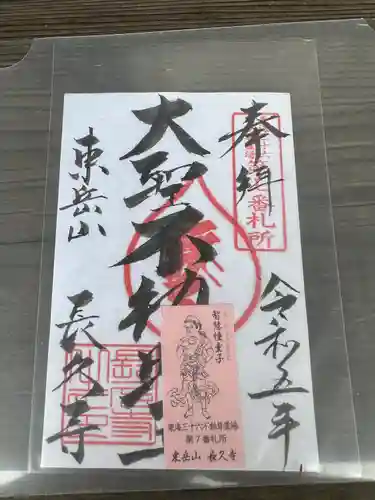 奉拝
令和五年
大聖不動明王
東岳山
長久寺
番札所
智慧幢童子
東海三十六不動尊霊場
第7番札所
東岳山 長久寺